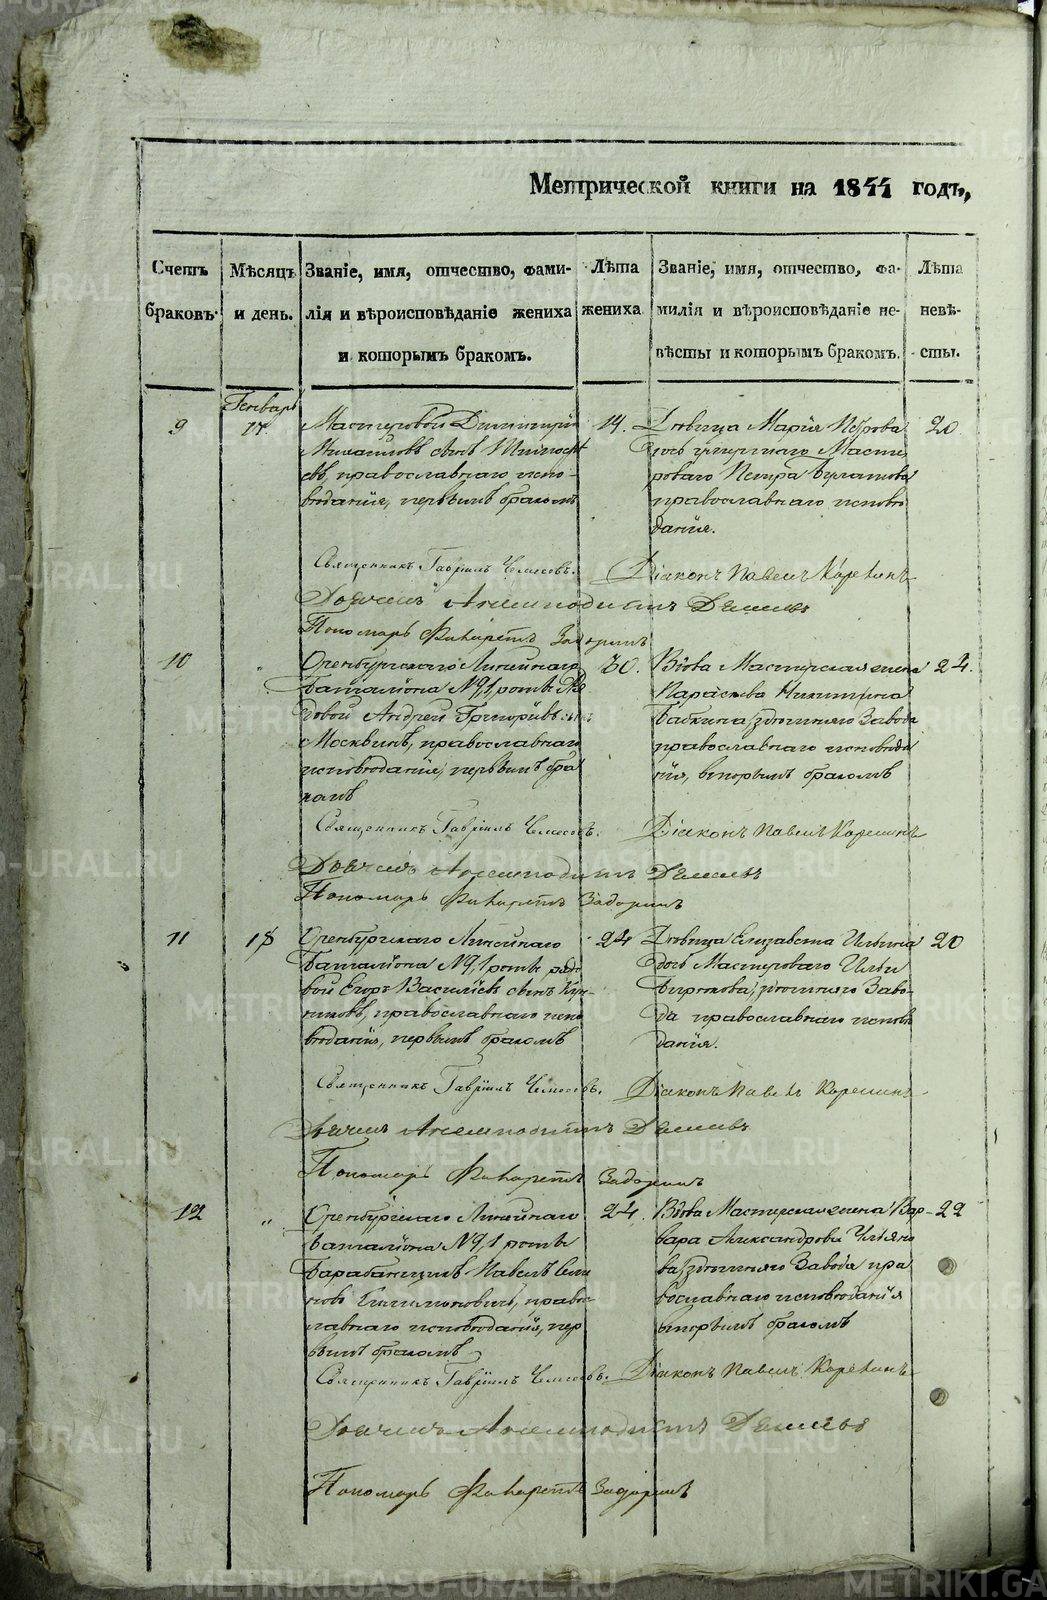 Метрической книги на 1844 годъ,
Счетъ браковъ.
Мѣсяцъ и день.
Званіе, имя, отчество, фамилія и вѣроисповѣданіе жениха и которымъ бракомъ.
Лѣта жениха
Званіе, имя, отчество, фамилія и вѣроисповѣданіе невѣсты и которымъ бракомъ.
Лѣта невѣсты.
Генварь
9
17.
Мастеровой Димитрій
сынъ
евъ, православнаго испо-
вѣданія, первымъ бракомъ
19.
Дѣвица Марія Петрова
дочь Масте
роваго Петра
православнаго исповѣ
данія.
20
Священникъ Гавріилъ
Діаконъ Павелъ Карекинъ
Дьячекъ
Пономарь Филаретъ Задоринъ
10
"
Оренбургскаго Линейнаго
Баталіона №9, 1 роты Ря
довой Андрей Григорьевъ сынъ
Москвинъ, православнаго
исповѣданія, первымъ бра
комъ
30.
Вдова Мастерская жена
Параскева Никитина
Бабкина, здѣшняго Завода
православнаго исповѣда
нія, вторымъ бракомъ
24.
Священникъ Гавріилъ
Діаконъ Павелъ Карекинъ
Дьячекъ
Пономарь Филаретъ Задоринъ
11
18
Оренбургскаго Линейнаго
Баталіона №9, 1 роты рядо
вой Егоръ Васильевъ сынъ
православнаго испо
вѣданія, первымъ бракомъ
24
Дѣвица Елизавета Ильина
дочь Мастероваго Ильи
здѣшняго Заво-
да православнаго исповѣ
данія.
20
Священникъ Гавріилъ
Діаконъ Павелъ Карекинъ
Дьячекъ
Пономарь Филаретъ Задоринъ
12
"
Оренбургскаго Линейнаго
Баталіона №9, 1 роты
Барабанщикъ Павелъ
правос
лавнаго исповѣданія, пер
вымъ бракомъ
24.
Вдова Мастерская жена Вар-
вара Александрова
ва, здѣшняго Завода пра
вославнаго исповѣданія
вторымъ бракомъ
22
Священникъ Гавріилъ
Діаконъ Павелъ Карекинъ
Дьячекъ
Пономарь Филаретъ Задоринъ
METRIKI.GASO-URAL.RU